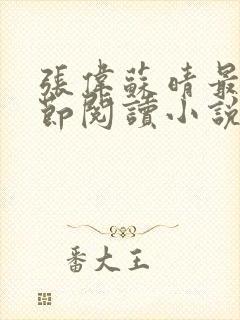 張偉蘇晴最
節閱讀小說
番大王